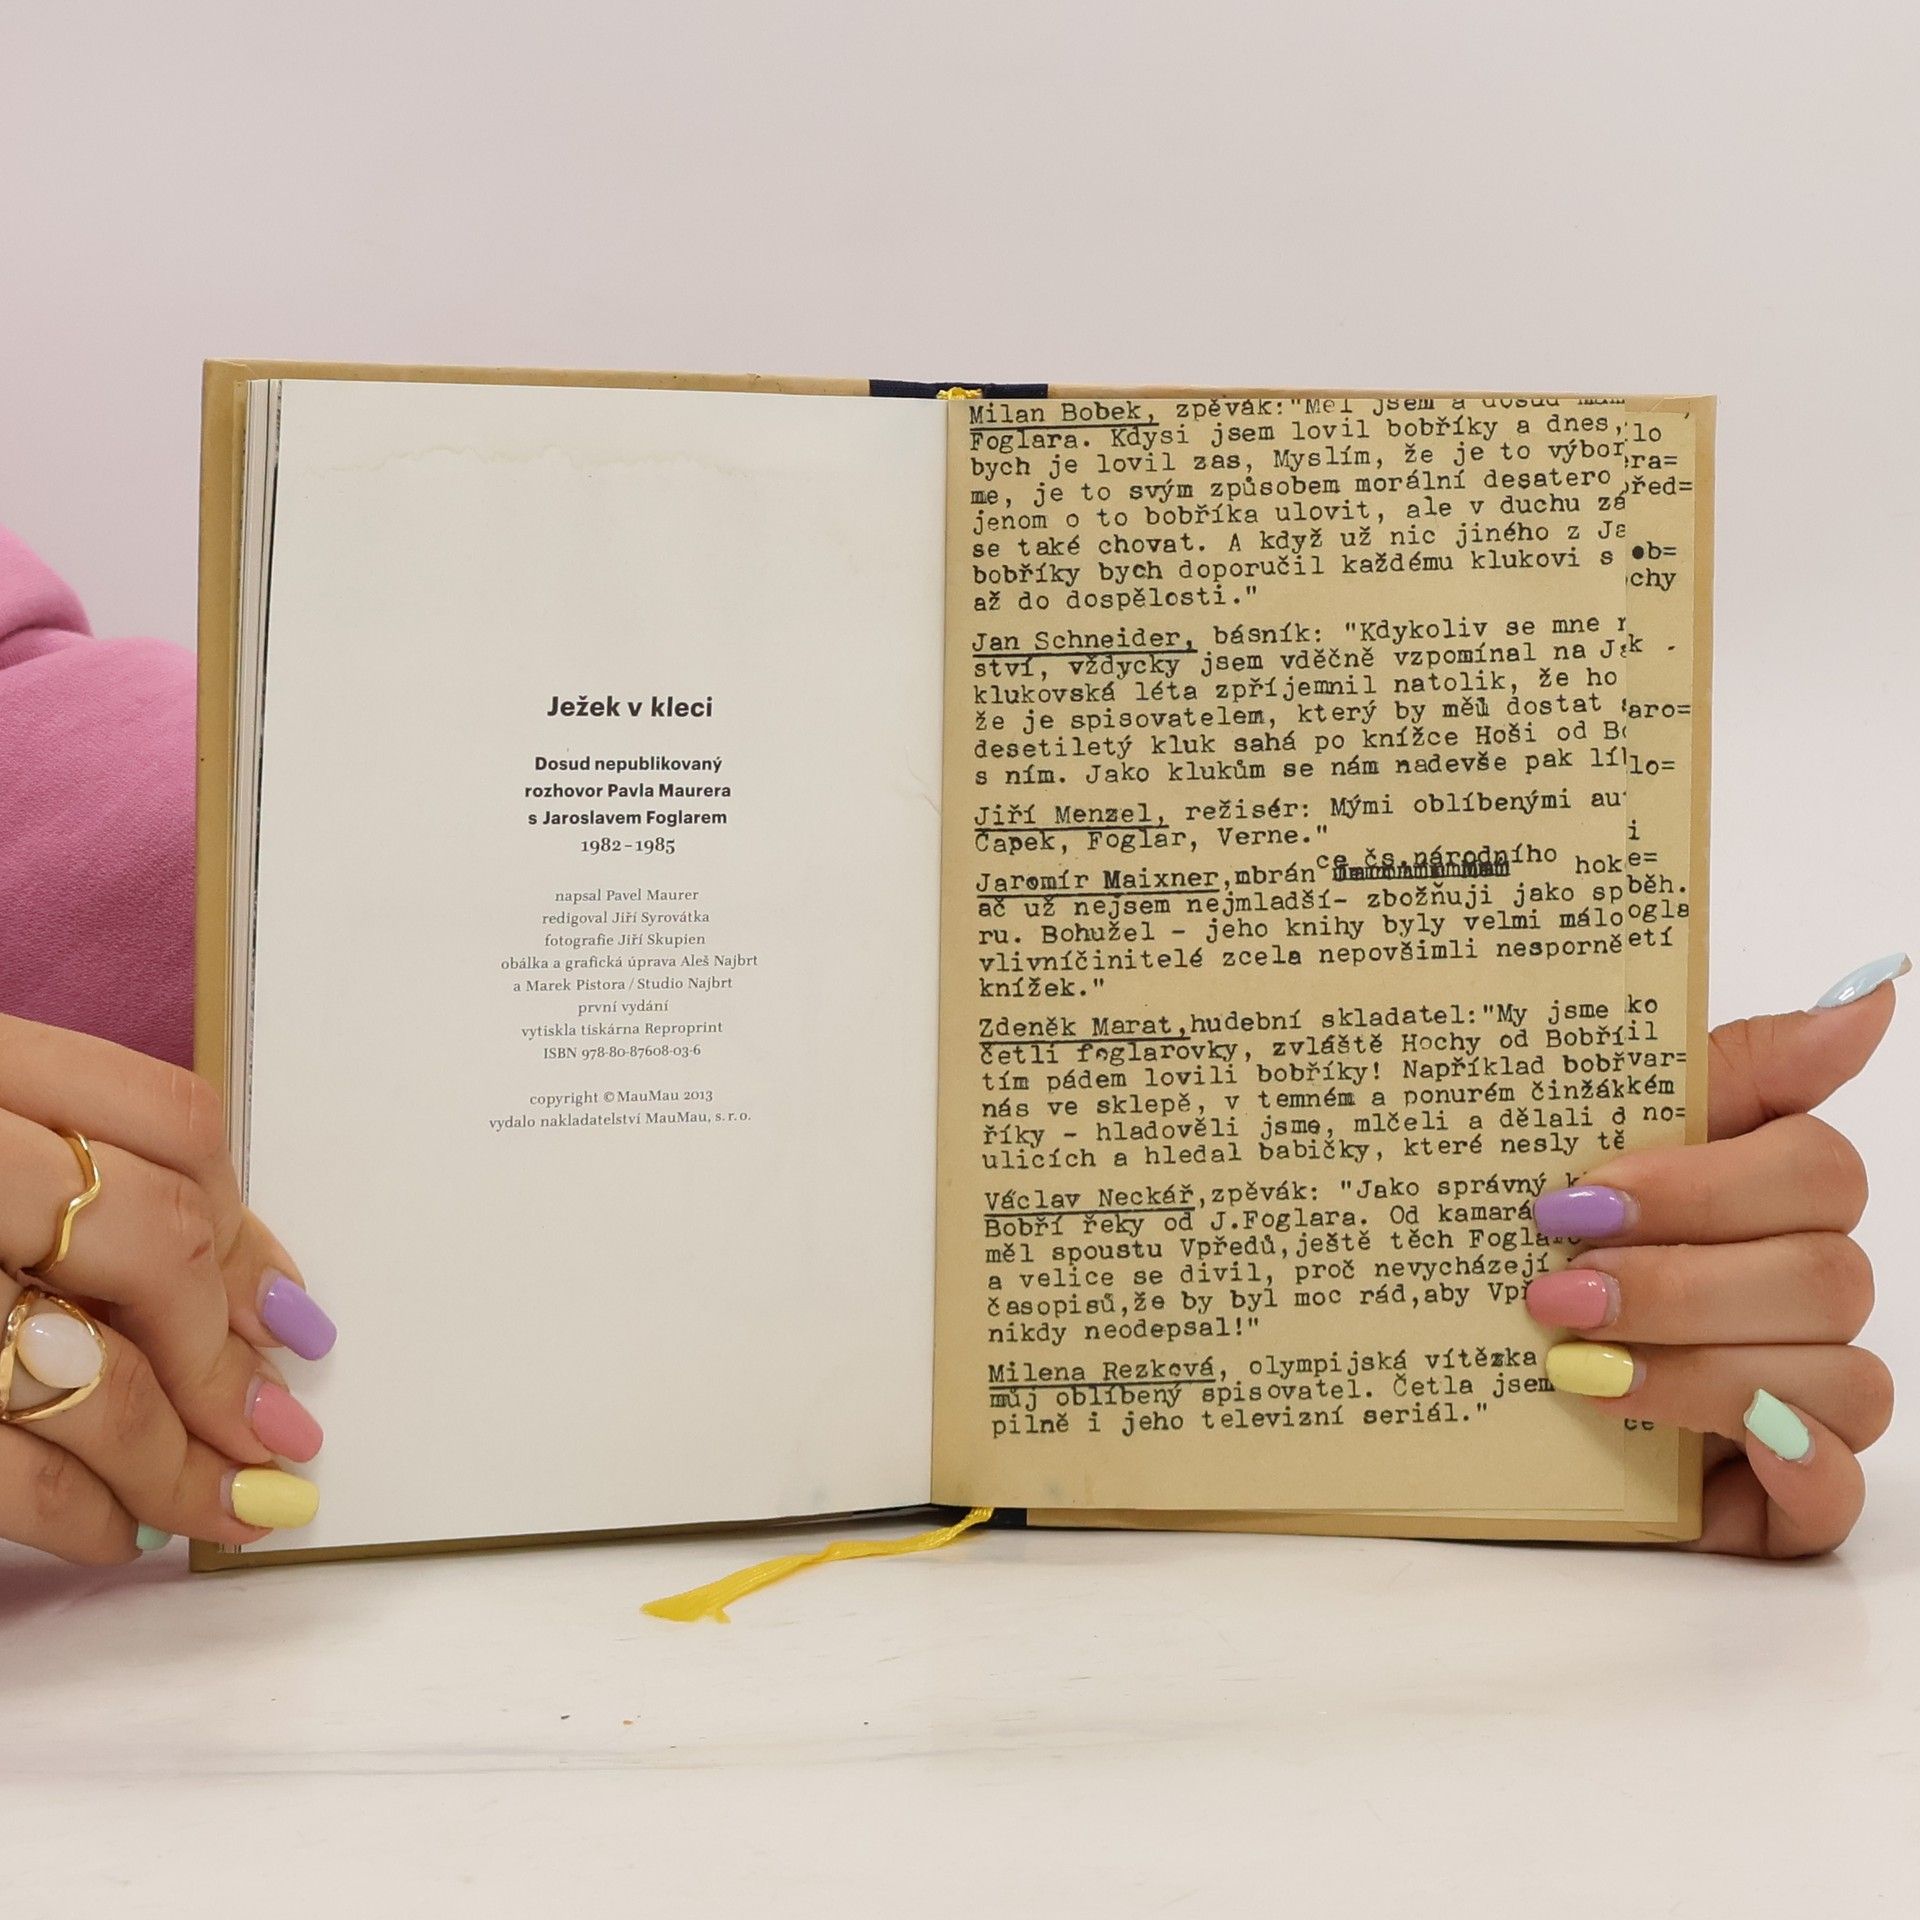 Ježek v kleci
Dosud nepublikovaný
rozhovor Pavla Maurera
s Jaroslavem Foglarem
1982–1985
napsal Pavel Maurer
redigoval Jiří Syrovátka
fotografie Jiří Skupien
obálka a grafická úprava Aleš Najbrt
a Marek Pistora / Studio Najbrt
první vydání
vytiskla tiskárna Reproprint
ISBN 978-80-87608-03-6
copyright © MauMau 2013
vydalo nakladatelství MauMau, s. r. o.
Milan Bobek, zpěvák:"Měl jsem a dosud
Foglara. Kdysi jsem lovil bobříky a dnes, lo
bych je lovil zas, Myslím, že je to výbor ra=
me, je to svým způsobem morální desatero řed=
jenom o to bobříka ulovit, ale v duchu zá
se také chovat. A když už nic jiného z Ja ob=
bobříky bych doporučil každému klukovi s chy
až do dospělosti."
Jan Schneider, básník: "Kdykoliv se mne
ství, vždycky jsem vděčně vzpomínal na k
klukovská léta zpříjemnil natolik, že ho
že je spisovatelem, který by měl dostat aro=
desetiletý kluk sahá po knížce Hoši od
s ním. Jako klukům se nám nadevše pak lí lo=
Jiří Menzel, režisér: Mými oblíbenými au i
Čapek, Foglar, Verne."
Jaromír Maixner,mbrán ce čs.národního hok e=
ač už nejsem nejmladší- zbožňuji jako sp běh.
ru. Bohužel - jeho knihy byly velmi málo ogla
vlivníčinitelé zcela nepovšimli nesporně etí
knížek."
Zdeněk Marat,hudební skladatel:"My jsme ko
četli foglarovky, zvláště Hochy od Bobří il
tím pádem lovili bobříky! Například bobř var=
nás ve sklepě, v temném a ponurém činžák kém
říky - hladověli jsme, mlčeli a dělali d no=
ulicích a hledal babičky, které nesly tě
Václav Neckář,zpěvák: "Jako správný k
Bobří řeky od J.Foglara. Od kamará
měl spoustu Vpředů,ještě těch
a velice se divil, proč nevycházejí
časopisů,že by byl moc rád,aby
nikdy neodepsal!"
Milena Rezková, olympijská vítězka
můj oblíbený spisovatel. Četla jsem
pilně i jeho televizní seriál." ce